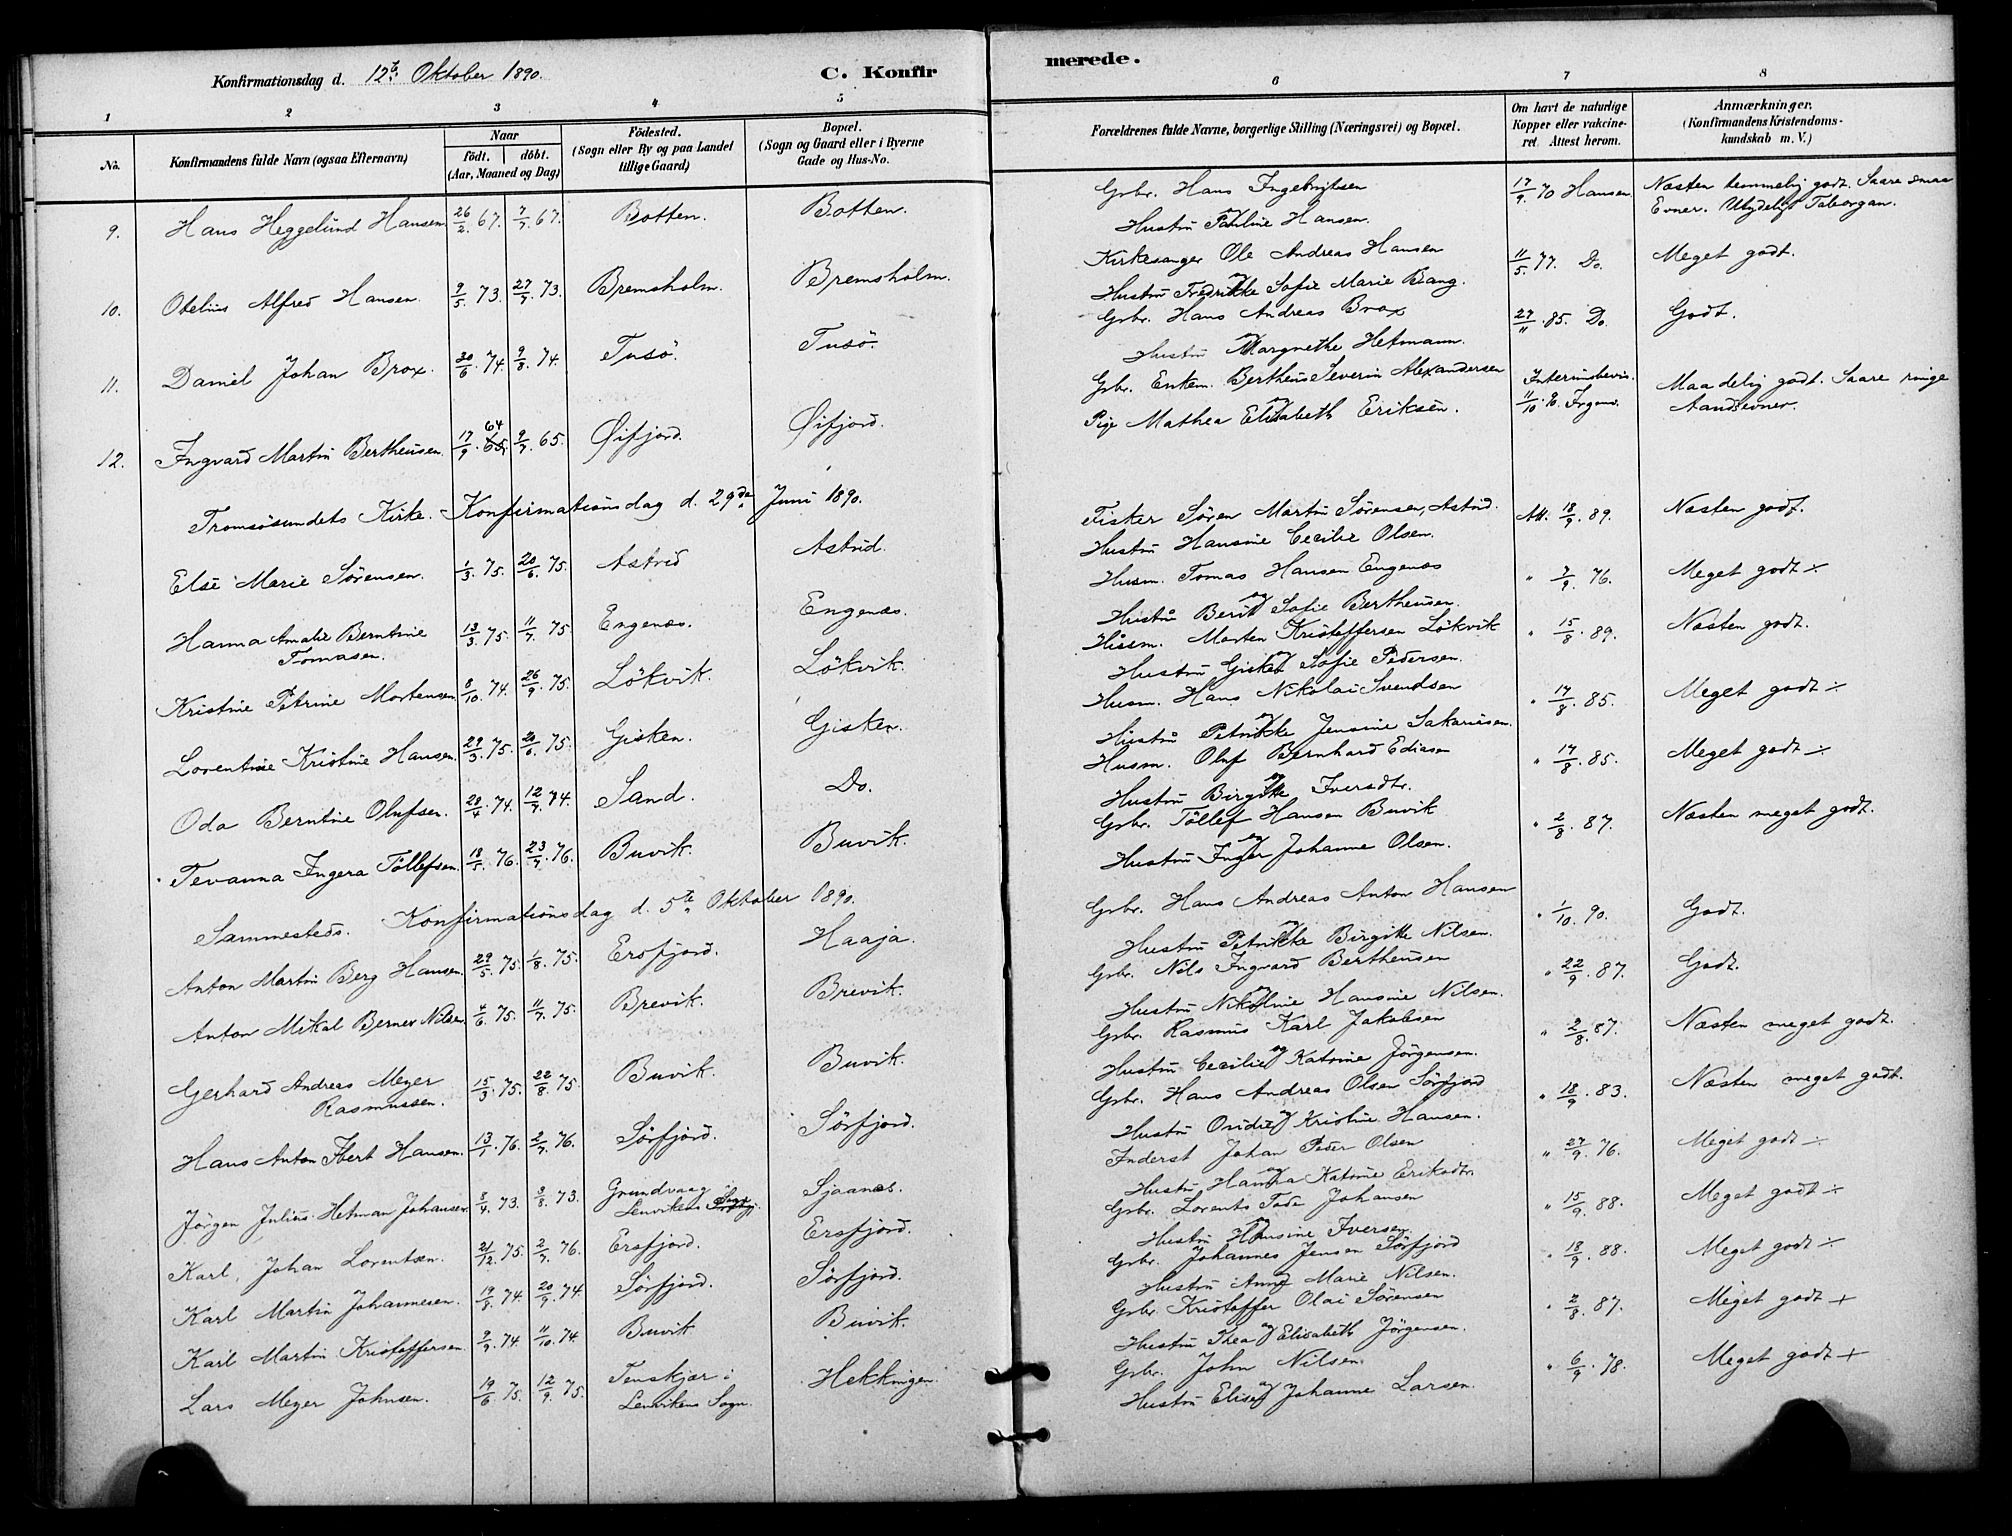 Konfirmationsdag d. 12te Oktober 1890. C. Konfirmerede.
1 2 3 4 5 6 7 8
No. Konfirmandens fulde Navn (ogsaa Efternavn) Naar födt. döbt. (Aar, Maaned og Dag) Födested. (Sogn eller By og paa Landet tillige Gaard) Bopæl. (Sogn og Gaard eller i Byerne Gade og Hus-No. Forældrenes fulde Navne, borgerlige Stilling (Næringsvei) og Bopæl. Om havt de naturlige Kopper eller vakcineret. Attest herom. Anmærkninger. (Konfirmandens Kristendomskundskab m. V.)
9. Hans Heggelund Hansen 26/2 67. 7/7 67. Botten. Botten. Gbr. Hans Ingebrigtsen og Hustru Pauline Hansen. 17/9 70 Hansen Næsten temmelig godt. Saare smaa Evner. Utydeligt Taleorgan.
10. Obelius Alfred Hansen. 9/5 73. 27/7 73. Bremsholm. Bremsholm. Kirkesanger Ole Andreas Hansen og Hustru Fredrikke Sofie Marie Bang. 11/5 77. Do. Meget godt.
11. Daniel Johan Brox. 20/6 74. 9/8 74. Tusö. Tusö. Gbr. Hans Andreas Brox og Hustru Margrethe Hetmann. 27/11 85. Do. Godt.
12. Ingvard Martin Bertheusen. 17/9 64 65 9/7 65. Øifjord. Øifjord. Gbr. Enkem. Bertheus Severin Alexandersen og Pige Mathea Elisabeth Eriksen. Interimsbevis. 11/10 90 Maadelig godt. Saare ringe Aandsevner.
Tromsösundets Kirke. Konfirmationsdag d. 29de Juni 1890.
Else Marie Sörensen. 1/3 75. 20/6 75. Astrid Astrid. Fisker Sören Martin Sörensen, Astrid. Hustru Hansine Cecilie Olsen. Att. 18/9 89. Næsten godt.
Hanna Amalie Berntine Tomasen. 13/3 75. 11/7 75 Engenæs. Engenæs. Husm. Tomas Hansen Engenæs og Hustru Berit Sofie Bertheusen. " 7/9 76. Meget godt ÷
Kristine Petrine Mortensen 8/10 74. 26/9 75. Lökvik. Lökvik. Husm. Morten Kristoffersen Lökvik og Hustru Gisken Sofie Pedersen. " 15/8 89. Næsten godt.
Lorentine Kristine Hansen. 29/3 75. 20/6 75. Gisken. Gisken. Husm. Hans Nikolai Svendsen og Hustru Petrikke Jensine Sakariasen. " 17/8 85. Meget godt ÷
Oda Berntine Olufsen. 28/4 74. 12/7 74. Sand. Do. Husm. Oluf Bernhard Ediasen og Hustru Birgitte Iversdtr. " 17/8 85. Meget godt ÷
Tevanna Ingera Töllefsen. 18/5 76. 23/7 76. Buvik. Buvik. Gbr. Töllef Hansen Buvik og Hustru Inger Johanne Olsen. " 2/8 87. Næsten meget godt.
Sammesteds. Konfirmationsdag d. 5te Oktober 1890.
Anton Martin Berg Hansen. 29/5 75. 1/8 75. Ersfjord. Haaja. Gbr. Hans Andreas Anton Hansen og Hustru Petrikke Birgitte Nilsen. " 1/10 90. Godt.
Anton Mikal Berner Nilsen. 4/6 75. 11/7 75. Brevik. Brevik. Gbr. Nils Ingvard Bertheusen og Hustru Nikoline Hansine Nilsen. " 22/9 87. Godt.
Gerhard Andreas Meyer Rasmussen. 15/3 75. 22/8 75. Buvik. Buvik. Gbr. Rasmus Karl Jakobsen og Hustru Cecilie Katrine Jörgensen. " 2/8 87. Næsten meget godt.
Hans Anton Ibert Hansen. 13/1 76. 2/7 76. Sörfjord. Sörfjord. Gbr. Hans Andreas Olsen Sörfjord og Hustru Ovidie Kristine Hansen. " 18/9 83. Næsten meget godt.
Jörgen Julius Hetman Johansen 8/4 73. 3/8 73. Grundvaag Lenvikens Sogn. Sjaanæs. Inderst Johan Peder Olsen og Hustru Hanna Katrine Eriksdtr. " 27/9 76. Meget godt ÷
Karl Johan Lorentsen. 21/12 75. 2/7 76. Ersfjord. Ersfjord. Gbr. Lorents Johansen og Hustru Hansine Iversen. " 15/9 88. Meget godt ÷
Karl Martin Johannesen. 19/8 74. 20/9 74 Sörfjord. Sörfjord. Gbr. Johannes Jensen Sörfjord og Hustru Anne Marie Nilsen. " 18/9 88. Meget godt ÷
Karl Martin Kristoffersen. 9/9 74 11/10 74 Buvik Buvik. Gbr. Kristoffer Olai Sörensen og Hustru Thea Elisabeth Jörgensen. " 2/8 87. Meget godt +
Lars Meyer Johnsen. 19/6 75. 12/9 75. Tenskjær i Lenvikens Sogn. Hekkingen. Gbr. John Nilsen og Hustru Elise Johanne Larsen. " 6/9 78. Meget godt +